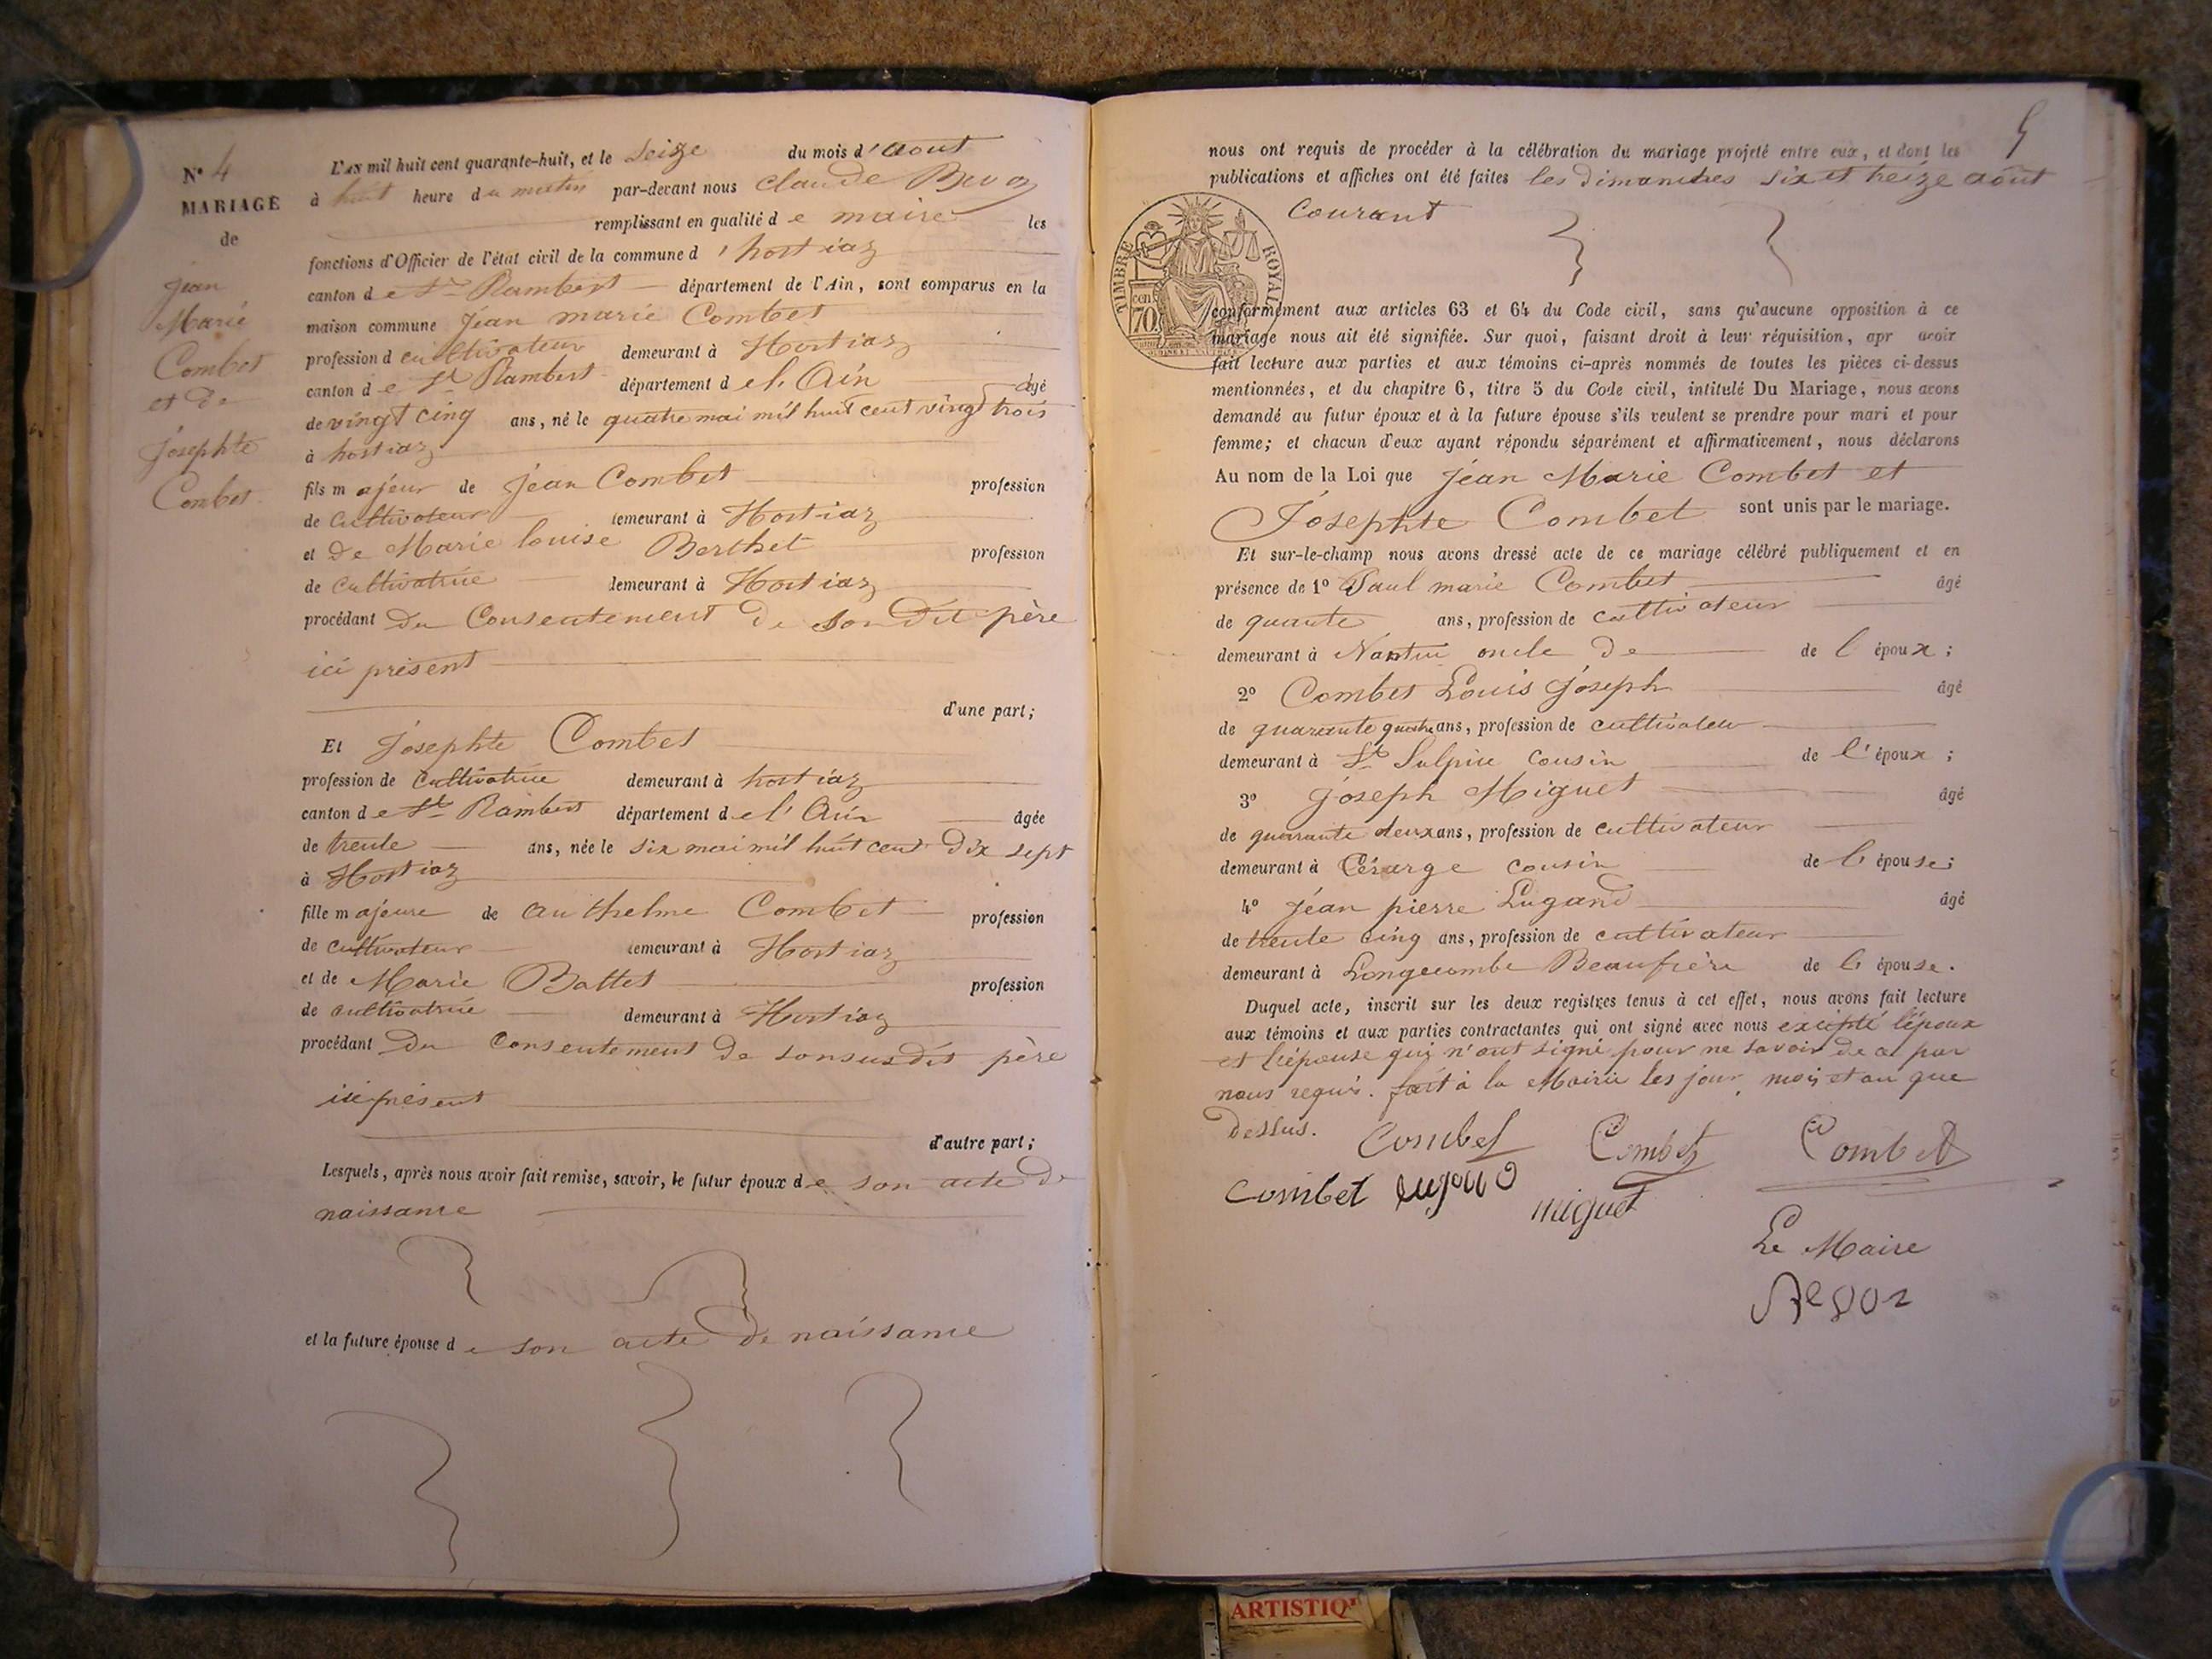 N° 4
MARIAGE
de
jean
Marie
Combet
et de
Josephte
Combet
L'AN mil huit cent quarante-huit, et le seize du mois d'aout
à huit heure du matin par-devant nous claude
remplissant en qualité de maire les
fonctions d'Officier de l'état civil de la commune d'hostiaz
canton de St Rambert département de l'Ain, sont comparus en la
maison commune jean marie Combet
profession d cultivateur demeurant à Hostiaz
canton de St Rambert département de l'Ain âgé
de vingt cinq ans, né le quatre mai mil huit cent vingt trois
à hostiaz
fils majeur de jean Combet profession
de cultivateur demeurant à Hostiaz
et de Marie louise Berthet profession
de cultivatrice demeurant à Hostiaz
procédant du Consentement de son dit père
ici présent
d'une part;
Et Josephte Combet
profession de cultivatrice demeurant à hostiaz
canton de St Rambert département de l'Ain âgée
de trente ans, née le six mai mil huit cent dix sept
à Hostiaz
fille majeure de anthelme Combet profession
de cultivateur demeurant à Hostiaz
et de Marie Battet profession
de cultivatrice demeurant à Hostiaz
procédant du Consentement de son susdit père
ici présent
d'autre part;
Lesquels, après nous avoir fait remise, savoir, le futur époux de son acte de
naissance
et la future épouse de son acte de naissance
5
nous ont requis de procéder à la célébration du mariage projeté entre eux, et dont les
publications et affiches ont été faites les dimanches six et treize aôut
Courant
TIMBRE ROYAL
70 cen
conformément aux articles 63 et 64 du Code civil, sans qu'aucune opposition à ce
mariage nous ait été signifiée. Sur quoi, faisant droit à leur réquisition, apr avoir
fait lecture aux parties et aux témoins ci-après nommés de toutes les pièces ci-dessus
mentionnées, et du chapitre 6, titre 5 du Code civil, intitulé Du Mariage, nous avons
demandé au futur époux et à la future épouse s'ils veulent se prendre pour mari et pour
femme; et chacun d'eux ayant répondu séparément et affirmativement, nous déclarons
Au nom de la Loi que jean Marie Combet et
Josephte Combet sont unis par le mariage.
Et sur-le-champ nous avons dressé acte de ce mariage célébré publiquement et en
présence de 1° Paul marie Combet âgé
de quante ans, profession de cultivateur
demeurant à Nantua oncle de de l'époux;
2° Combet Louis joseph âgé
de quarante quatre ans, profession de cultivateur
demeurant à St Sulpice cousin de l'époux;
3° joseph Miguet âgé
de quarante deux ans, profession de cultivateur
demeurant à Cérarge cousin de l'épouse;
4° jean pierre Lugand âgé
de trente cinq ans, profession de cultivateur
demeurant à Longecombe Beaufrère de l'épouse.
Duquel acte, inscrit sur les deux registres tenus à cet effet, nous avons fait lecture
aux témoins et aux parties contractantes qui ont signé avec nous excepté l'époux
et l'épouse qui n'ont signé pour ne savoir de ce par
nous requis. fait à la Mairie les jour, mois et an que
dessus. Combet Combet Combet
combet lugand miguet
Le Maire
ARTISTIQ